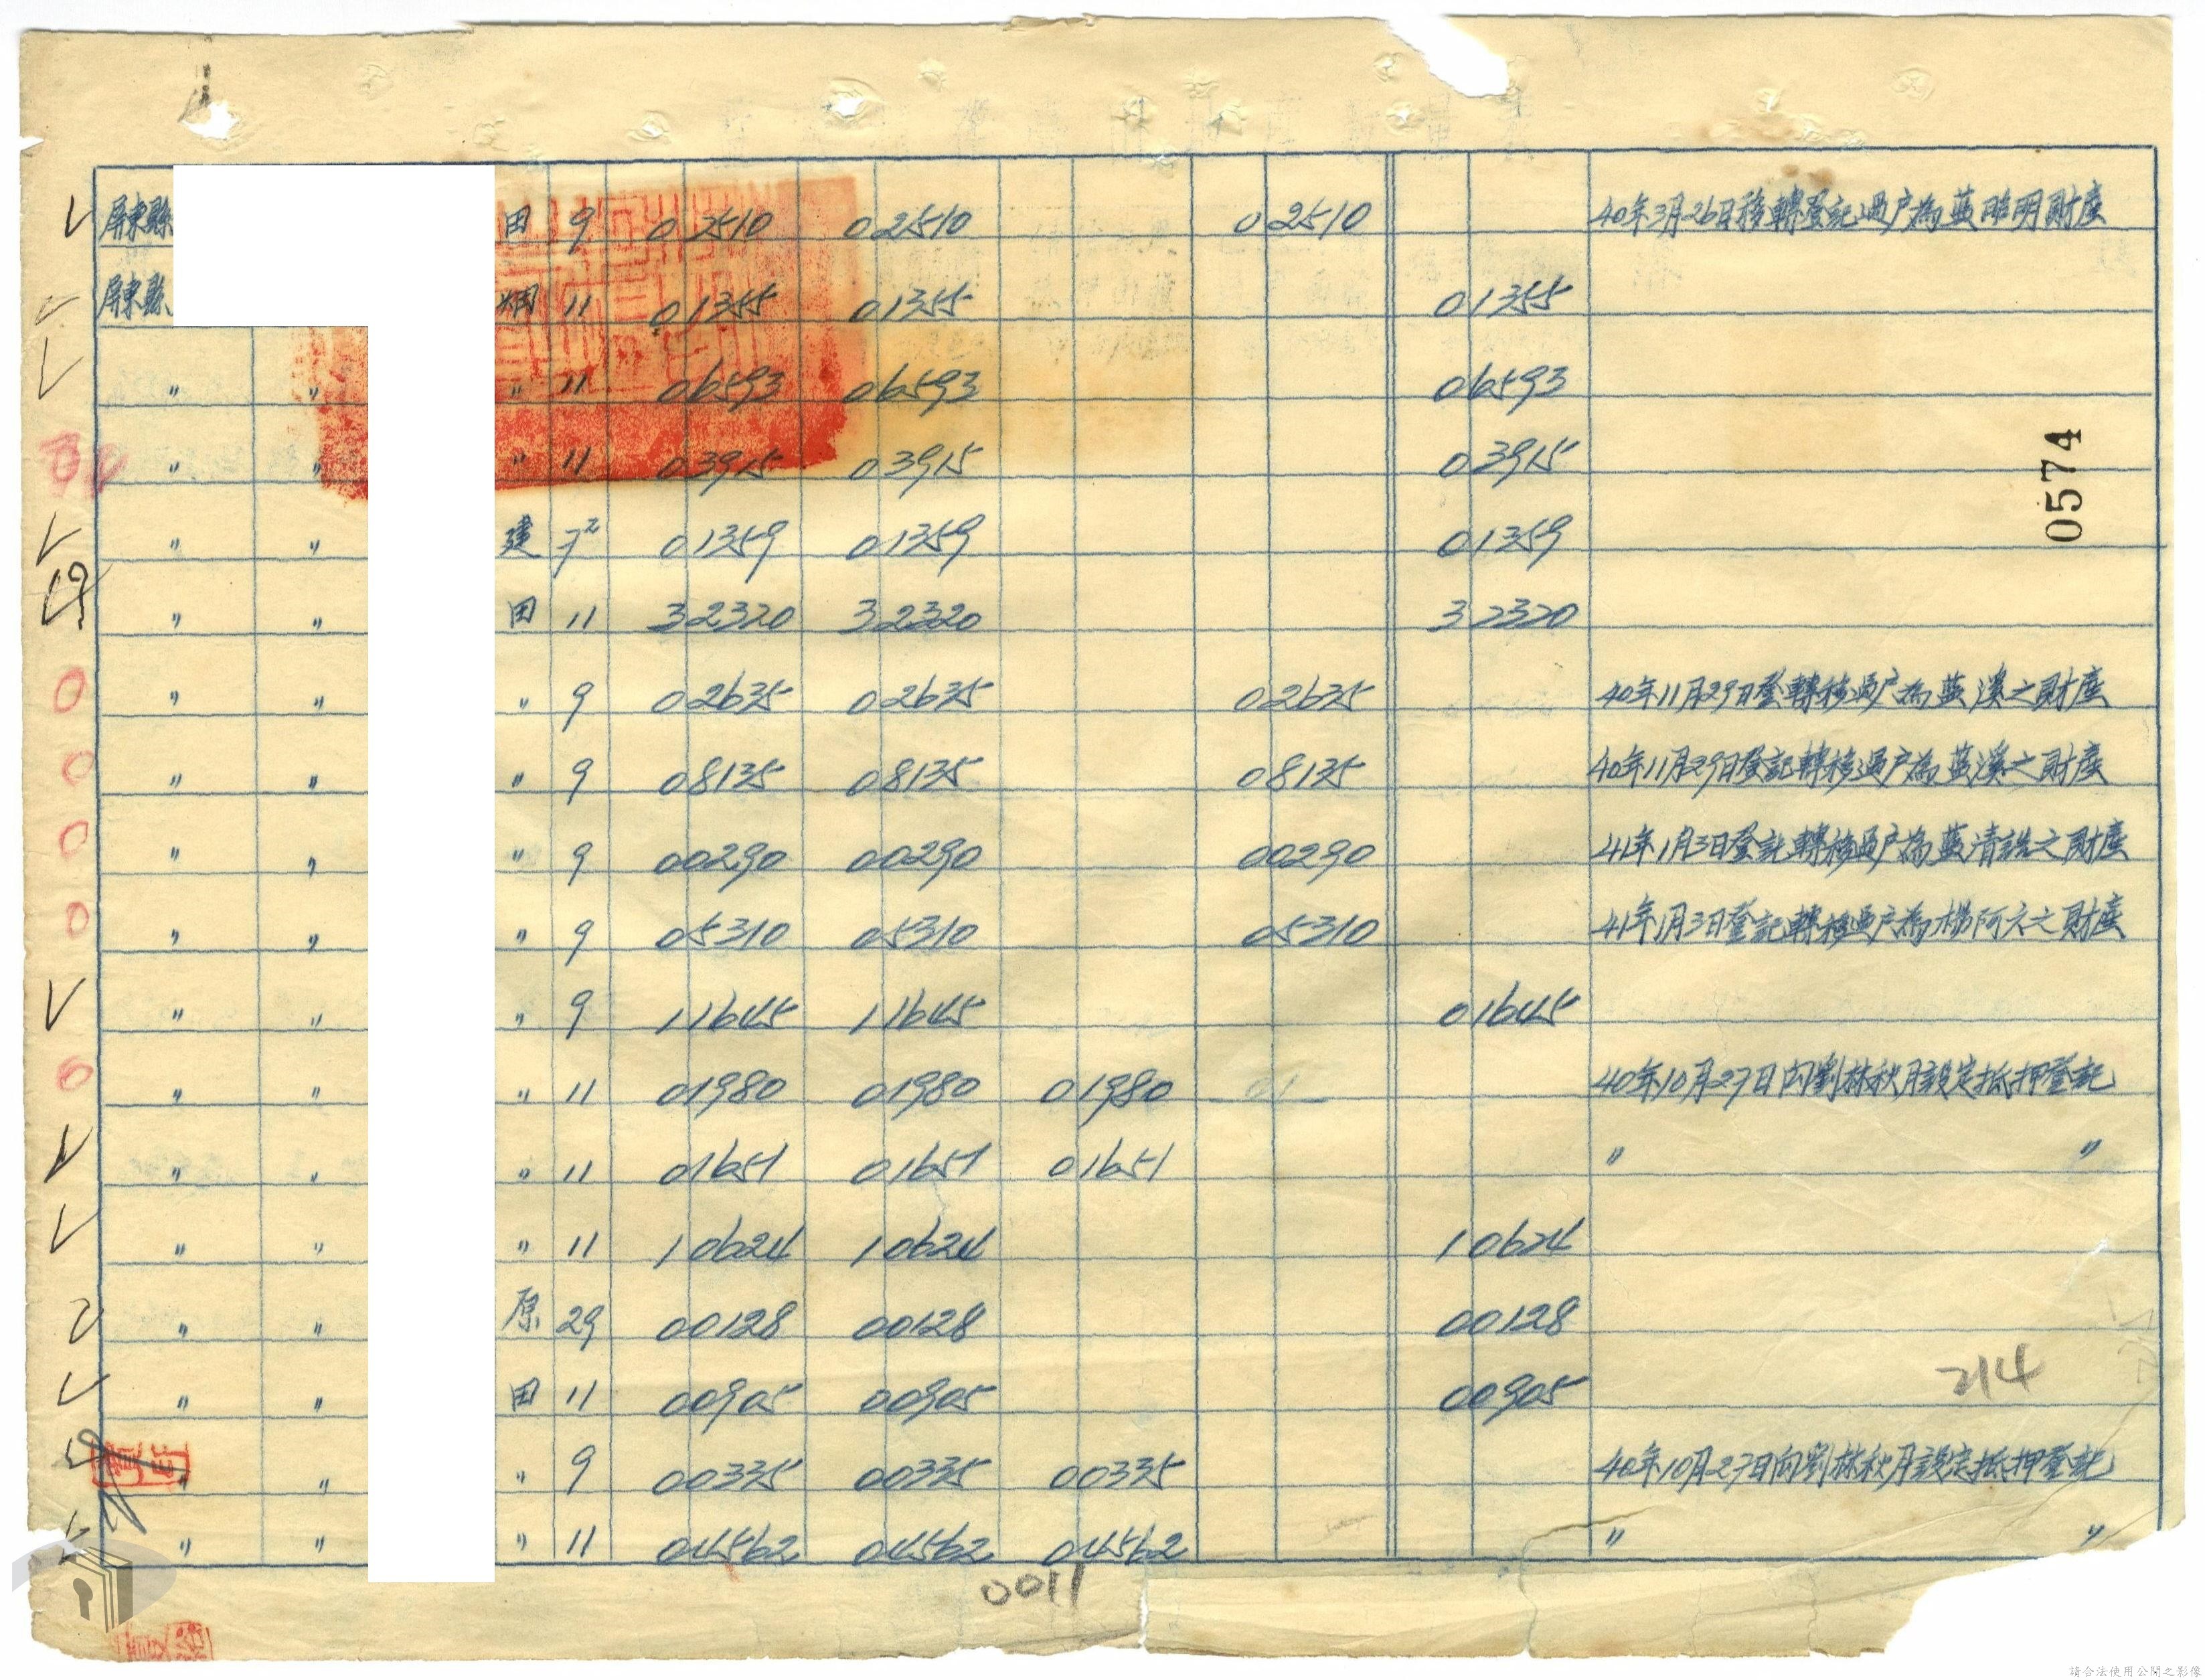 屏東縣 田 9 02510 02510 02510 40年3月26日移轉登記過户為藍昭明財產
屏東縣 畑 11 01355 01355 01355
〃 〃 〃 11 06593 06593 06593
〃 〃 〃 11 03915 03915 03915
0574
〃 〃 建 72 01359 01359 01359
〃 〃 田 11 32320 32320 32320
〃 〃 〃 9 02635 02635 02635 40年11月29日登轉移過户為藍溪之財產
〃 〃 〃 9 08135 08135 08135 40年11月29日登記轉移過户為藍溪之財產
〃 〃 〃 9 00290 00290 00290 41年1月3日登記轉移過户為藍清誥之財產
〃 〃 〃 9 05310 05310 05310 41年1月3日登記轉移過户為楊阿元之財產
〃 〃 〃 9 11645 11645 01645
〃 〃 〃 11 01980 01980 01980 01 40年10月27日向劉林秋月設定抵押登記
〃 〃 〃 11 01651 01651 01651 〃 〃
〃 〃 〃 11 10624 10624 10624
〃 〃 原 29 00128 00128 00128
〃 〃 田 11 00905 00905 00905
214
〃 〃 〃 9 00335 00335 00335 40年10月27日向劉林秋月設定抵押登記
〃 〃 〃 11 04562 04562 04562 〃 〃
0011
請合法使用公開之影像